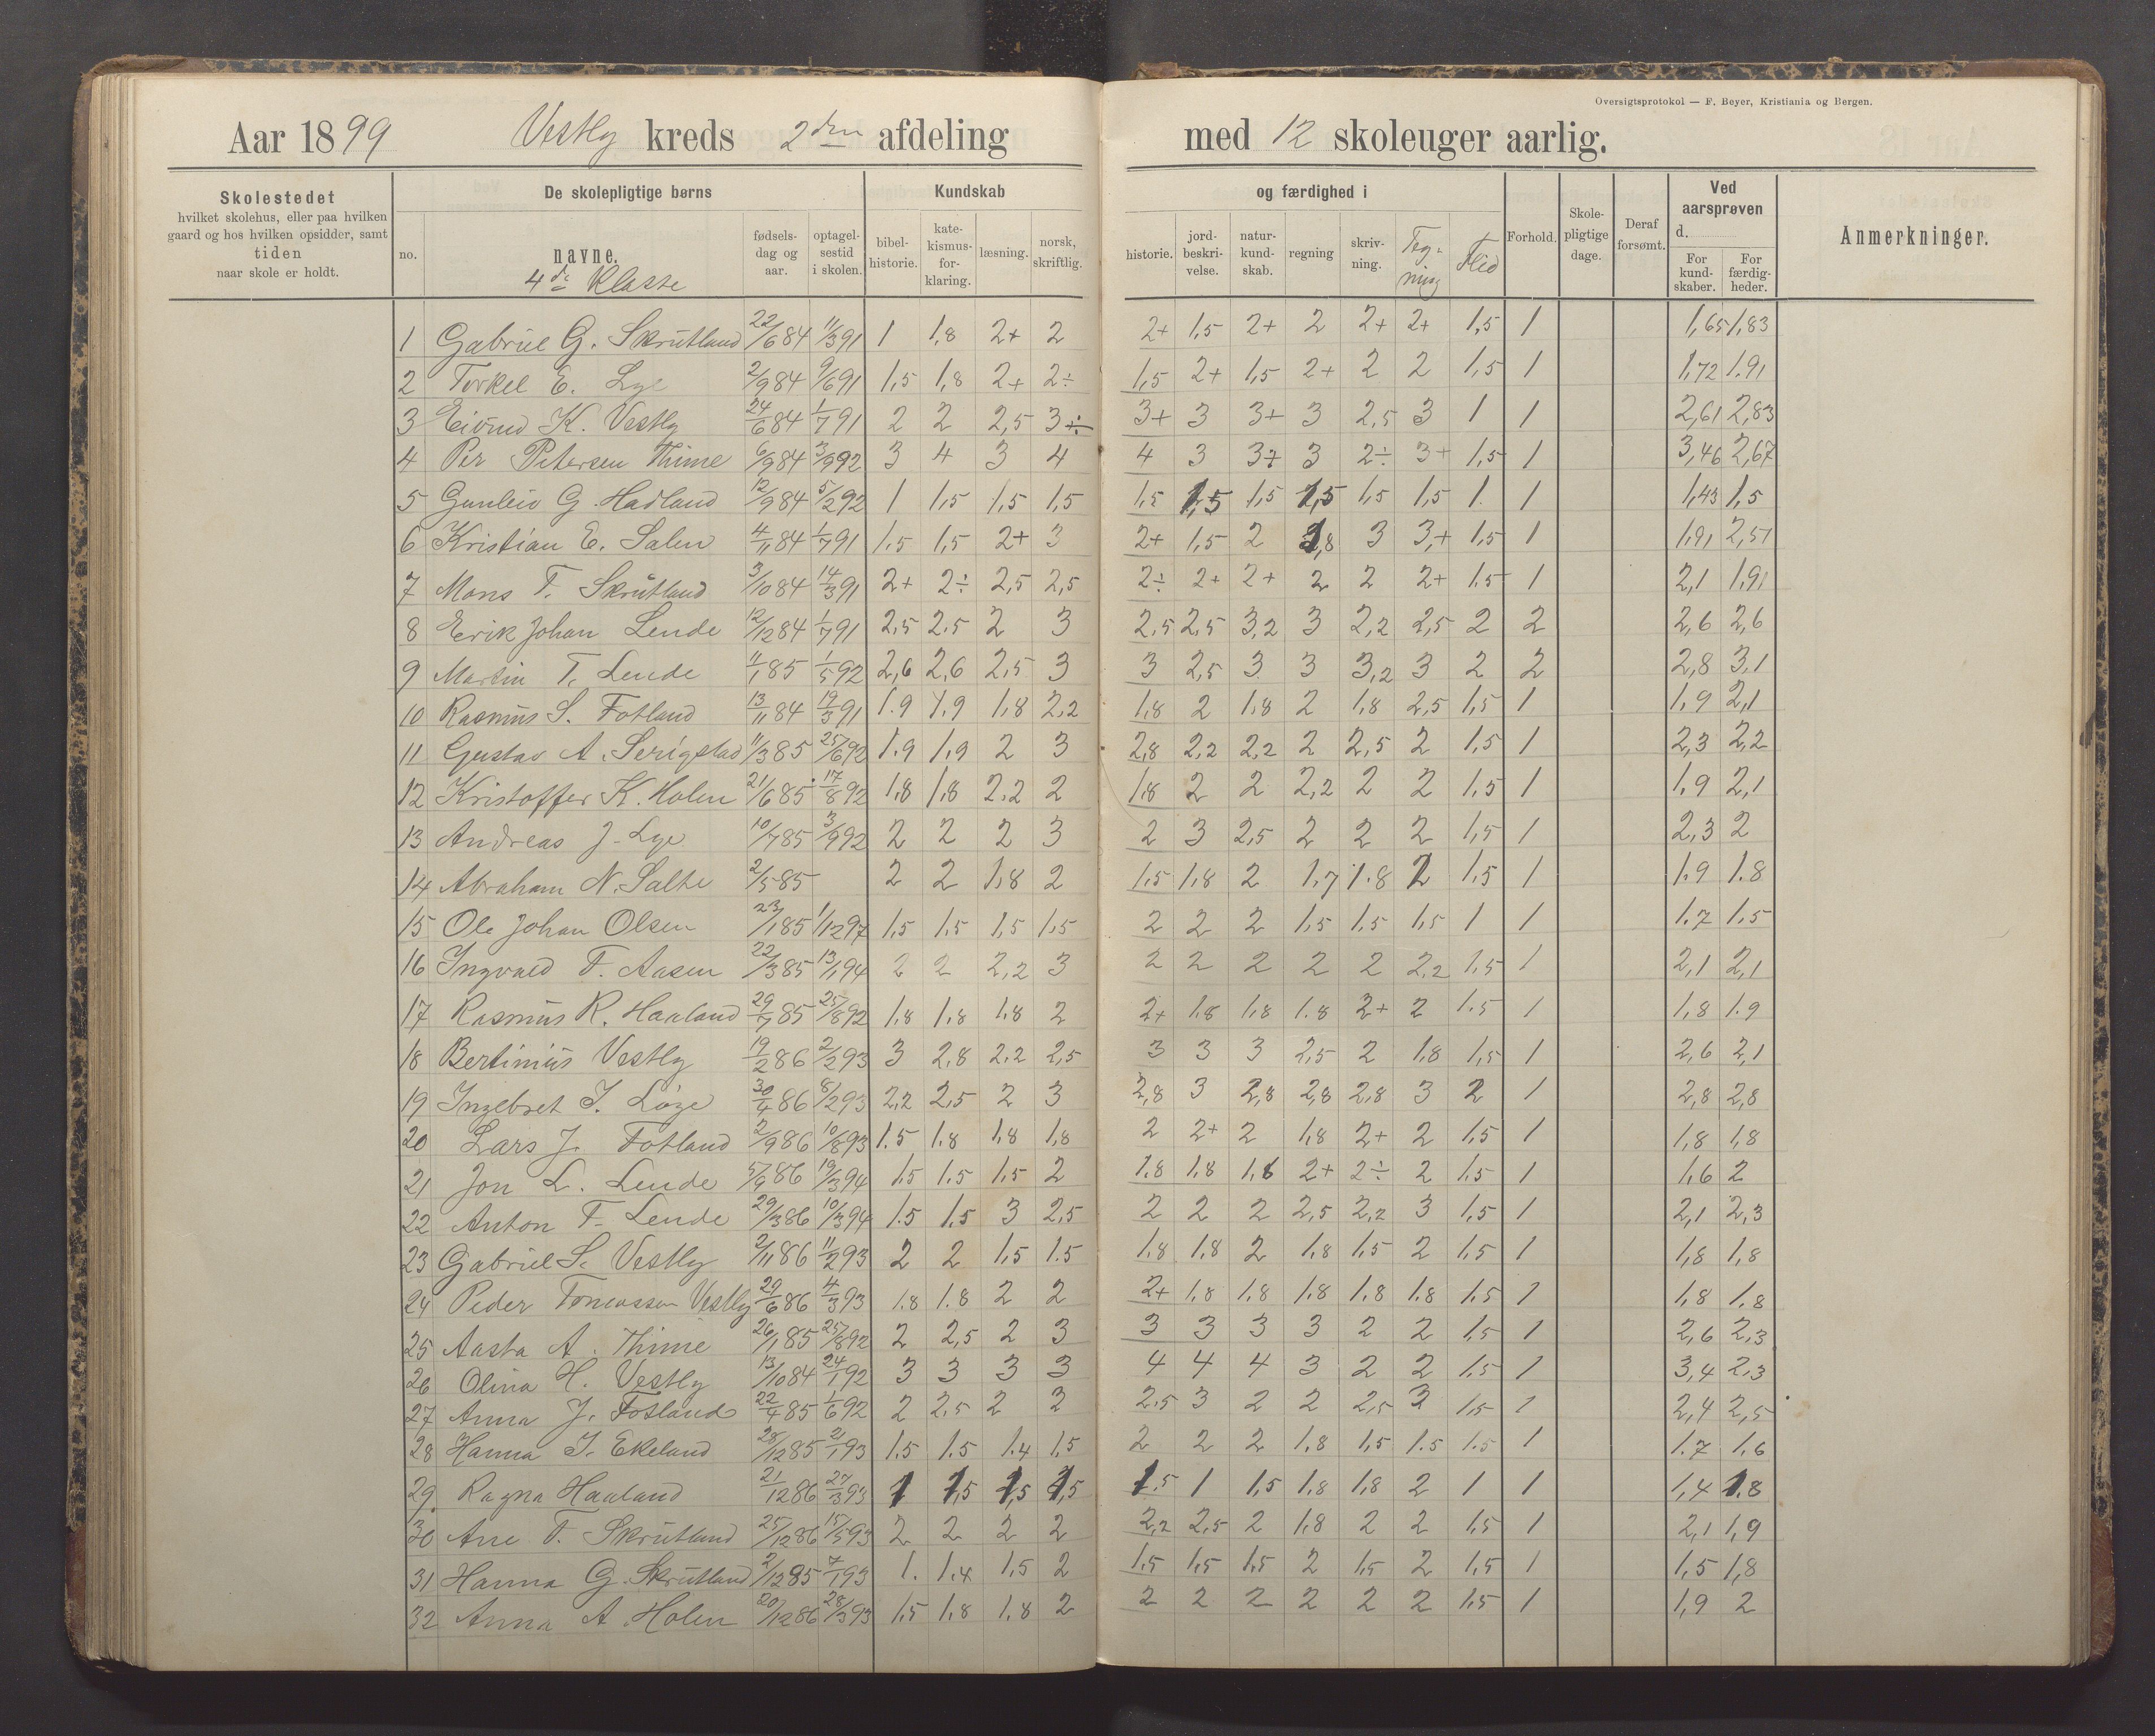 Oversigtsprotokol — F. Beyer, Kristiania og Bergen.
Aar 1899 Vestly kreds 2den afdeling med 12 skoleuger aarlig.
Skolestedet hvilket skolehus, eller paa hvilken gaard og hos hvilken opsidder, samt tiden naar skole er holdt.
De skolepligtige børns
no. navne. fødselsdag og aar. optagelsestid i skolen.
4de Klasse
Kundskab og færdighed i
bibelhistorie. katekismusforklaring. læsning. norsk, skriftlig. historie. jordbeskrivelse. naturkundskab. regning skrivning. Tegning Flid
Forhold. Skolepligtige dage. Deraf forsømt. Ved aarsprøven d. For kundskaber. For færdigheder. Anmerkninger.
1 Gabriel G. Skrutland 22/6 84 11/3 91 1 1,8 2+ 2 2+ 1,5 2+ 2 2+ 2+ 1,5 1 1,65 1,83
2 Torkel E. Lye 2/9 84 9/6 91 1,5 1,8 2+ 2÷ 1,5 2+ 1,5 2+ 2 2 1,5 1 1,72 1.91
3 Eivind K. Vestly 24/6 84 1/7 91 2 2 2,5 3÷ 3+ 3 3+ 3 2,5 3 1 1 2,61 2,83
4 Per Petersen Thime 6/9 84 3/9 92 3 4 3 4 4 3 3+ 3 2÷ 3+ 1,5 1 3,46 2,67
5 Gunleiv G. Hadland 12/9 84 5/2 92 1 1,5 1,5 1,5 1,5 1,5 1,5 1,5 1,5 1,5 1. 1 1,43 1,5
6 Kristian E. Salen 4/11 84 1/7 91 1.5 1,5 2+ 3 2+ 1,5 2 1,8 3 3,+ 1,5 1 1,91 2,51
7 Mons T. Skrutland 3/10 84 14/3 91 2+ 2÷ 2,5 2,5 2÷ 2+ 2+ 2 2 2+ 1.5 1 2,1 1.91
8 Erik Johan Lende 12/12 84 1/7 91 2,5 2.5 2 3 2.5 2,5 3,2 3 2,2 2,5 2 2 2,6 2,6
9 Martin T. Lende 11/1 85 1/5 92 2,6 2,6 2,5 3 3 2,5 3 3 3,2 3 2 2 2,8 3,1
10 Rasmus S. Fotland 13/11 84 19/3 91 1.9 1.9 1,8 2,2 1,8 2 1,8 2 1,8 2,5 1,5 1 1,9 2,1
11 Gustav A. Serigstad 11/3 85 25/6 92 1.9 1,9 2 3 2,8 2,2 2,2 2 2,5 2 1,5 1 2,3 2,2
12 Kristoffer K. Holen 21/6 85 17/8 92 1,8 1,8 2.2 2 1,8 2 2 2,2 2 2 1,5 1 1,9 2,1
13 Andreas J. Lye 10/7 85 3/9 92 2 2 2 3 2 3 2,5 2 2 2 1,5 1 2,3 2
14 Abraham N. Salte 2/5 85 2 2 1,8 2 1,5 1,8 2 1,7 1.8 2 1,5 1 1.9 1.8
15 Ole Johan Olsen 23/1 85 1/12 97 1,5 1,5 1,5 1,5 2 2 2 1,5 1,5 1,5 1 1 1.7 1,5
16 Ingvald T. Aasen 22/3 85 13/1 94 2 2 2,2 3 2 2 2 2 2 2,2 1,5 1 2,1 2,1
17 Rasmus R. Haaland 29/7 85 25/8 92 1,8 1,8 1,8 2 2+ 1,8 1,8 1.8 2+ 2 1.5 1 1,8 1.9
18 Bertinius Vestly 19/2 86 2/2 93 3 2,8 2.2 2,5 3 3 3 2,5 2 1,8 1,5 1 2,6 2,1
19 Ingebret I. Løge 30/4 86 8/2 93 2,2 2,5 2 3 2,8 3 2,8 2,8 2,8 3 2 1 2,8 2,8
20 Lars J. Fotland 2/9 86 10/8 93 1.5 1.8 1,8 1,8 2 2+ 2 1,8 2+ 2 1,5 1 1,8 1,8
21 Jon L. Lende 5/9 86 19/3 94 1,5 1,5 1,5 2 1.8 1,8 1,6 2+ 2÷ 2 1.5 1 1,6 2
22 Anton T. Lende 29/3 86 10/3 94 1.5 1,5 3 2,5 2 2 2 2,5 2,2 3 1,5 1 2,1 2,3
23 Gabriel S. Vestly 2/11 86 11/2 93 2 2 1,5 1.5 1,8 1,8 2 1,8 1,5 2 1,5 1 1,8 1,8
24 Peder Tomassen Vestly 29/6 86 4/3 93 1.8 1.8 2 2 2+ 1,8 1,8 1,8 1,8 1,8 1,5 1 1,8 1,8
25 Aasta A. Thime 26/1 85 25/8 92 2 2,5 2 3 3 3 3 3 2 2 1,5 1 2,6 2,3
26 Olina H. Vestly 13/10 84 24/1 92 3 3 3 3 4 4 4 3 2 2 1,5 1 3,4 2,3
27 Anna J. Fotland 22/4 85 1/6 92 2 2,5 2 2 2.5 3 2 2 2,5 3 1,5 1 2,4 2,5
28 Hanna I. Ekeland 28/12 85 2/1 93 1,5 1.5 1.4 1,5 2 2 2 1,8 1,5 1.5 1.5 1 1.7 1.6
29 Ragna Haaland 21/12 86 27/3 93 1 1,5 1,5 1,5 1.5 1 1,5 1,8 1,8 2 1 1 1,4 1.8
30 Ane T. Skrutland 25/12 86 15/5 93 2 2 2 2 2,2 2,5 2 1,8 2 2 1,5 1 2,1 1,9
31 Hanna G. Skrutland 2/12 85 7/1 93 1. 1.4 1,5 2 1,5 1,5 1,5 2 1,5 2 1,5 1 1,5 1,8
32 Anna A. Holen 20/12 86 28/3 93 1,5 1,8 1.8 2 2 2 2 2 2 2 1,5 1 1,9 2